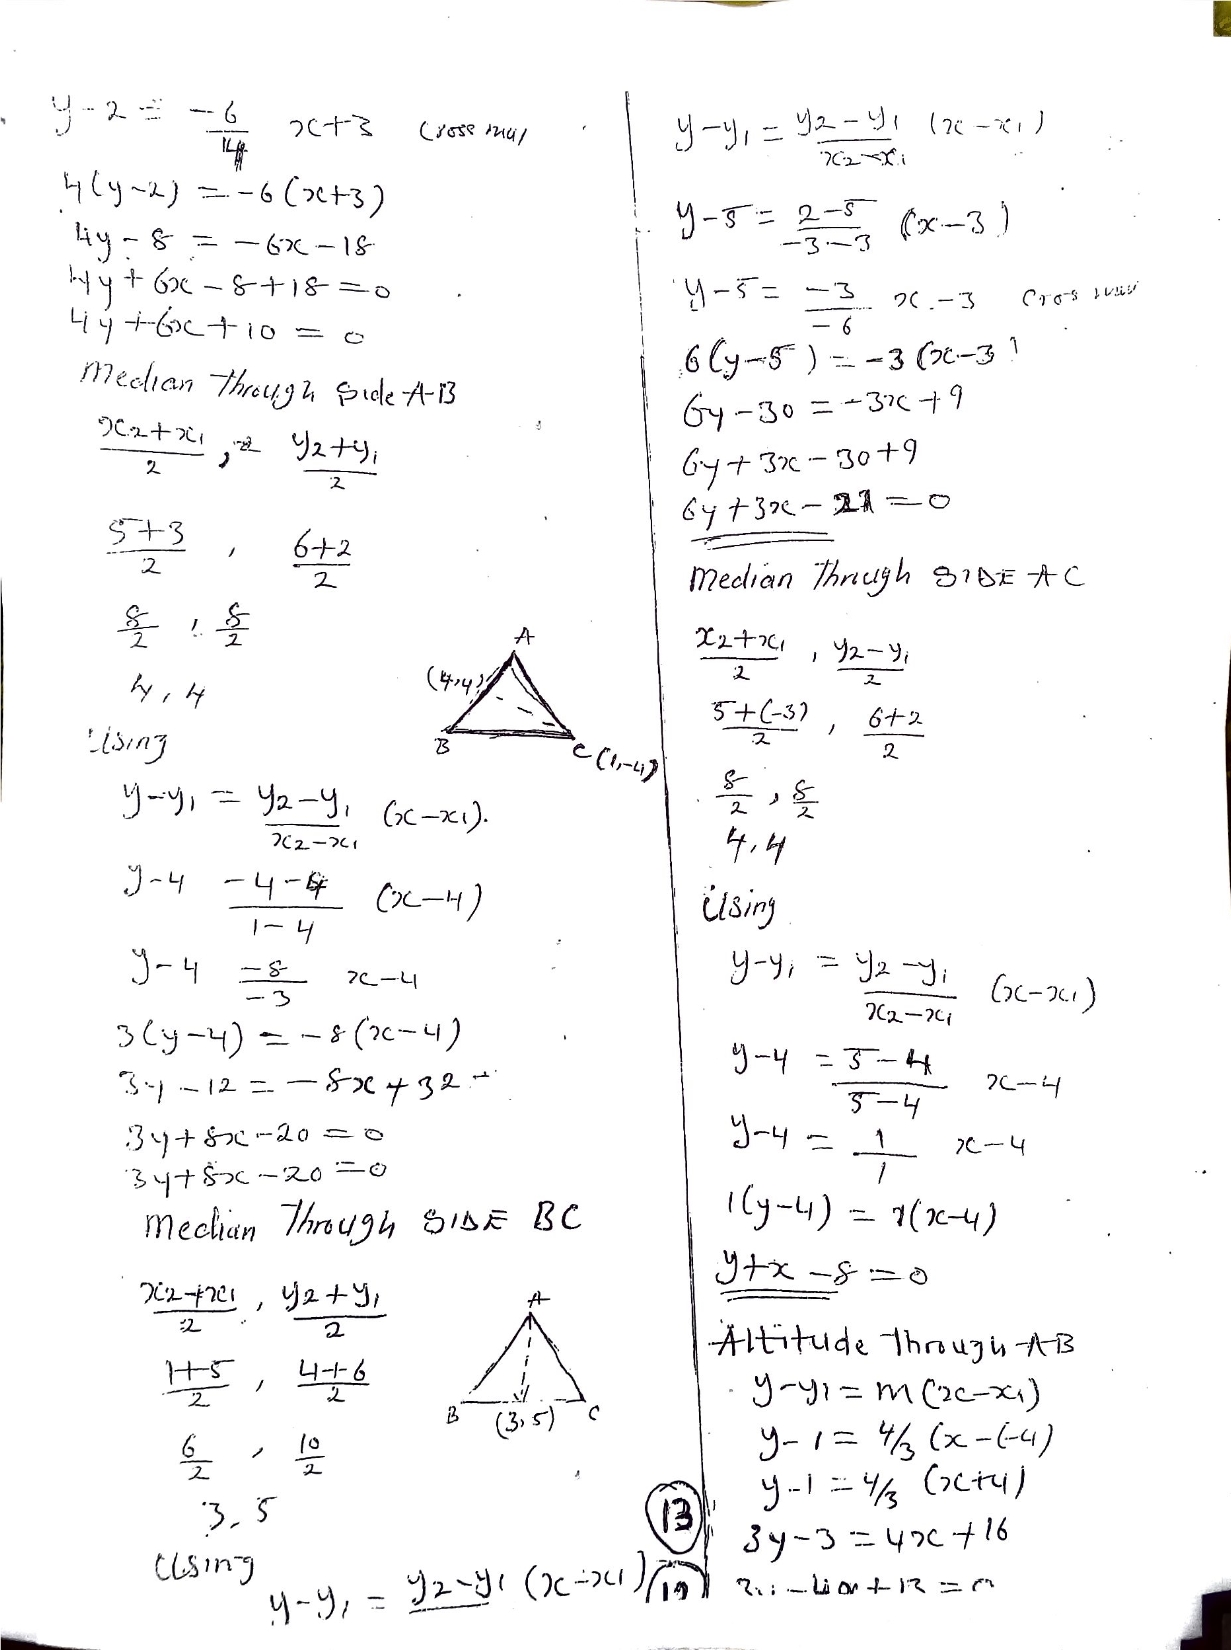 y-2 = -6/4 x+3 Cross mul
4(y-2) = -6(x+3)
4y-8 = -6x-18
4y+6x-8+18=0
4y+6x+10=0
Median Through Side AB
x2+x1/2 , y2+y1/2
5+3/2 , 6+2/2
8/2 , 8/2
4, 4
A
(4,4)
B
C (1,-4)
Using
y-y1 = y2-y1/x2-x1 (x-x1).
y-4 -4-4/1-4 (x-4)
y-4 -8/-3 x-4
3(y-4) = -8(x-4)
3y-12 = -8x+32
3y+8x-20=0
3y+8x-20=0
Median Through SIDE BC
x2+x1/2 , y2+y1/2
1+5/2 , 4+6/2
6/2 , 10/2
3, 5
A
B
(3,5)
C
Using
y-y1 = y2-y1 (x-x1)
y-y1 = y2-y1/x2-x1 (x-x1)
y-5 = 2-5/-3-3 (x-3)
y-5 = -3/-6 x-3 Cros mul
6(y-5) = -3(x-3)
6y-30 = -3x+9
6y+3x-30+9
6y+3x-21=0
Median Through SIDE AC
x2+x1/2 , y2-y1/2
5+(-3)/2 , 6+2/2
8/2 , 8/2
4, 4
Using
y-y1 = y2-y1/x2-x1 (x-x1)
y-4 = 5-4/5-4 x-4
y-4 = 1/1 x-4
1(y-4) = 1(x-4)
y+x-8=0
Altitude Through AB
y-y1 = m(x-x1)
y-1 = 4/3 (x-(-4)
y-1 = 4/3 (x+4)
3y-3 = 4x+16
13